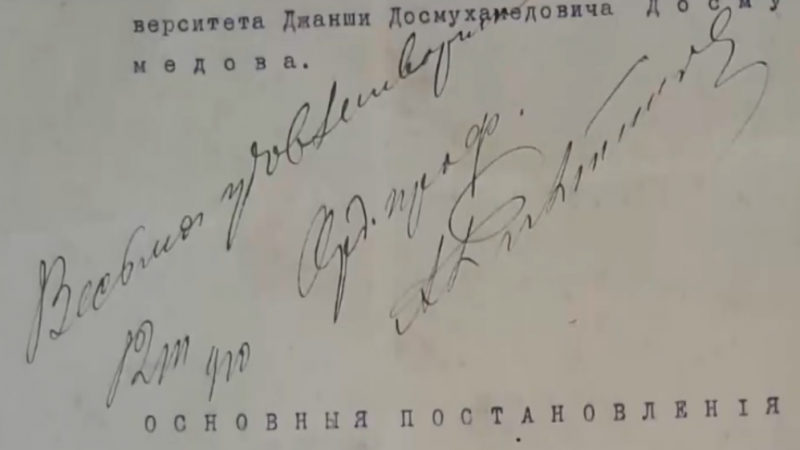 верситета Джанши Досмухамедовича Досму
медова.
Весьма удовлетворит
Орд. проф.
ОСНОВНЫЯ ПОСТАНОВЛЕНІЯ